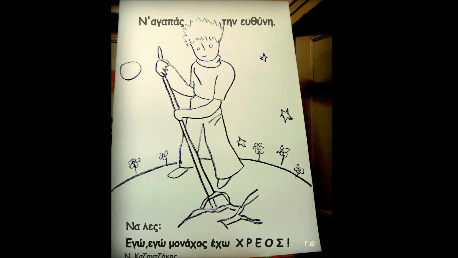 Ν'αγαπάς την ευθύνη.
Να λες:
Εγώ,εγώ μονάχος έχω ΧΡΕΟΣ!
Ν. Καζαντζάκης